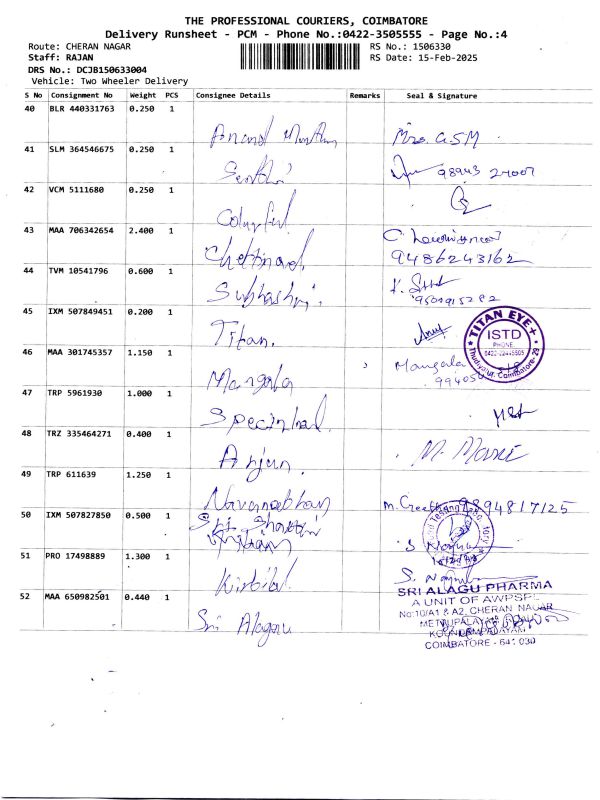 THE PROFESSIONAL COURIERS, COIMBATORE
Delivery Runsheet - PCM - Phone No.:0422-3505555 - Page No.:4
Route: CHERAN NAGAR
RS No.: 1506330
Staff: RAJAN
RS Date: 15-Feb-2025
DRS No.: DCJB150633004
Vehicle: Two Wheeler Delivery
S No Consignment No Weight PCS Consignee Details Remarks Seal & Signature
40 BLR 440331763 0.250 1
Anand Mrs. G.S.M
41 SLM 364546675 0.250 1
Senthil 98943 27007
42 VCM 5111680 0.250 1
Colurful
43 MAA 706342654 2.400 1
Chettinad C.
9486243162
44 TVM 10541796 0.600 1
Subhashri. K.
9501915282
45 IXM 507849451 0.200 1
Titan. TITAN EYE+
ISTD
PHONE
0422-2245505
Thudiyalur, Coimbatore-29
46 MAA 301745357 1.150 1
Mangala Mangala
47 TRP 5961930 1.000 1
48 TRZ 335464271 0.400 1
Arjun. M.
49 TRP 611639 1.250 1
Navaneethan M. Geetha 9894817125
50 IXM 507827850 0.500 1
Sri
51 PRO 17498889 1.300 1
S.
52 MAA 650982501 0.440 1
Sri Alagu SRI ALAGU PHARMA
A UNIT OF AWPSPL
No:10/A1 & A2, CHERAN NAGAR
METTUPALAYAM ROAD
KOUNDAMPALAYAM
COIMBATORE - 641 030